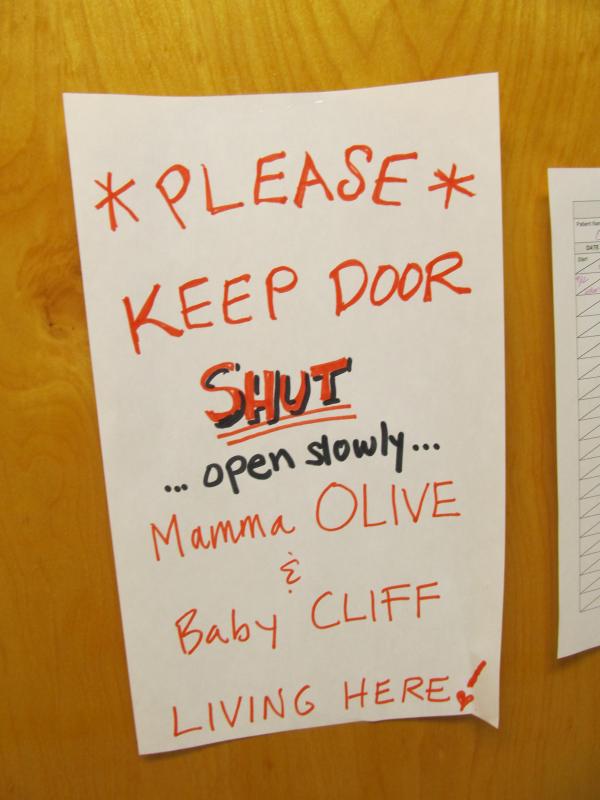 *PLEASE*
KEEP DOOR
SHUT
... open slowly...
Mamma OLIVE
&
Baby CLIFF
LIVING HERE!
DATE
Start